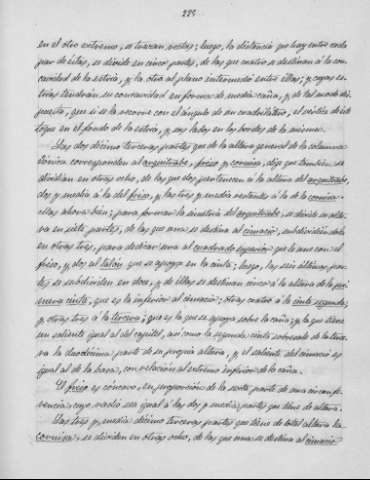 225.
en el otro extremo, se trazan, rectas; luego, la distancia que hay entre cada
par de éstas, se divide en cinco partes, de las que cuatro se destinan á la con-
cavidad de la estría, y la otra al plano intermedio entre ellas; y cuyas es-
trías tendrán su concavidad en forma de media caña, y de tal modo dis-
puesta, que si se la recorre con el ángulo de un cuadrilátero, el vértice de él
toque en el fondo de la estría, y sus lados en los bordes de la misma.
Las dos décimo terceras partes que de la altura general de la columna
iónica corresponden al arquitrabe, friso y cornisa, dije que también se
dividían en otras ocho, de las que dos pertenecen á la altura del arquitrabe,
dos y media á la del friso, y las tres y media restantes á la de la cornisa:
ellas ahora bien; para formar la simetría del arquitrabe, se divide su altu-
ra en siete partes, de las que una se destina al cimacio, subdividiéndola
en otras tres, para destinar una al cuadrado superior que le une con el
friso, y dos al talón que se apoya en la cinta; luego, las seis últimas par-
tes se subdividen en doce, y de ellas se destinan cinco á la altura de la pri-
mera cinta, que es la inferior al cimacio; otras cuatro á la cinta segunda;
y otras tres á la tercera; que es la que se apoya sobre la caña; y la que tiene
un saliente igual al del capitel, así como la segunda cinta sobresale de la terce-
ra la duodécima parte de su propia altura, y el saliente del cimacio es
igual al de la basa, con relación al extremo inferior de la caña.
El friso es cóncavo, en proporción de la sexta parte de una circunfe-
rencia, cuyo radio sea igual á las dos y media partes que tiene de altura.
Las tres y media décimo terceras partes que tiene de total altura la
cornisa, se dividen en otras ocho, de las que una se destina al cimacio